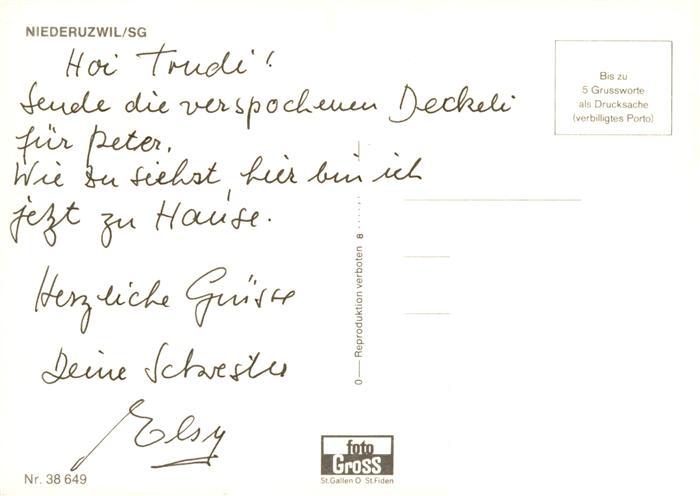 NIEDERUZWIL/SG
Hoi Trudi!
Sende die verspochenen Deckeli
für Peter.
Wie du siehst, hier bin ich
jetzt zu Hause.
Herzliche Grüsse
Deine Schwester
Elsy
Nr. 38 649
Bis zu
5 Grussworte
als Drucksache
(verbilligtes Porto)
O — Reproduktion verboten 8
foto
Gross
St.Gallen O St.Fiden